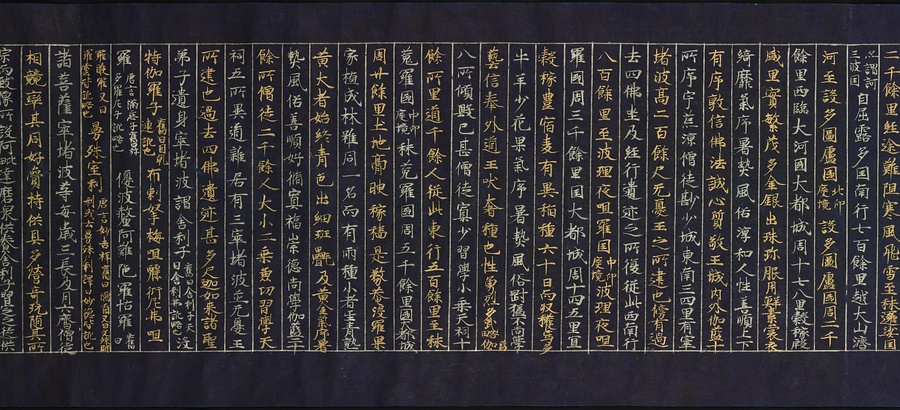 二千餘里經途艱阻寒風飛雪至秣邏娑国
亦謂三波訶国自屈露多国南行七百餘里越大山濟
河至設多圖盧國北印度境設多圖盧國周二千
餘里西臨大河國大都城周十七八里穀稼殷
盛果實繁茂多金銀出珠珎服用鮮素裳衣
綺靡氣序暑熱風俗淳和人性善順上下
有序敦信佛法誠心質敬王城內外伽藍十
所序宇荒涼僧徒尠少城東南三四里有窣
堵波高二百餘尺无憂王之所建也傍有過
去四佛坐及經行遺迹之所復從此西南行
八百餘里至波理夜呾羅国中印度境波理夜呾
羅國周三千餘里国大都城周十四五里宜
穀稼豊宿麦有異稻種六十日而收穫焉多
牛羊少花果氣序暑熱風俗剛猛不尚學
藝信奉外道王吠奢種也性勇烈多武略伽藍
八所傾毀已甚僧徒寡少習學小乗天祠十
餘所異道千餘人從此東行五百餘里至秣
菟羅國中印度境秣菟羅國周五千餘里国大都城
周廿餘里土地膏腴稼穡是務菴没羅果
家植成林雖同一名而有兩種小者生青熟
黄大者始終青色出細班㲲及黄金氣序暑
熱風俗善順好脩冥福崇德尚學伽藍二十
餘所僧徒二千餘人大小二乗兼功習學天
祠五所異道雜居有三窣堵波並无憂王
所建也過去四佛遺迹甚多尺迦如来諸聖
弟子遺身窣堵波謂舍利子舊曰舍利弗訛略也没
特伽羅子布剌拏梅呾麗衍尼弗呾
羅優波釐阿難陁羅怙羅
曼殊室利
諸菩薩窣堵波等每歲三長及月六齋僧徒
相競率其同好賫持供具多營奇玩隨其所
宗而致像設阿毗達磨衆供養舍利子習定之徒供